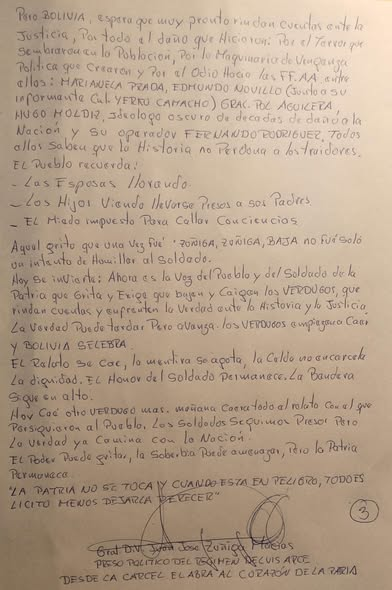 Pero BOLIVIA, espera que muy pronto rindan cuentas ante la
Justicia, Por todo el daño que Hicieron: Por el Terror que
Sembraron en la Poblacion, Por la Maquinaria de Venganza
Politica que Crearon y Por el Odio Hacia las FF.AA entre
ellos: MARIANELA PRADA, EDMUNDO NOVILLO (Junto a su
informante Cnl. YERKO CAMACHO) GRAL. POL AGUILERA,
HUGO MOLDIZ, Ideologo oscuro de decadas de daño a la
Nación y Su operador FERNANDO RODRIGUEZ, Todos
ellos Saben que la Historia no Perdona a los traidores.
EL Pueblo recuerda:
- Las Esposas llorando
- Los Hijos Viendo llevarse Presos a sus Padres
- EL Miedo impuesto Para Callar Conciencias
Aquel grito que una Vez fué "ZUÑIGA, ZUÑIGA, BAJA no fué Solo
un intento de Humillar al Soldado.
Hoy Se invierte: Ahora es la Voz del Pueblo y del Soldado de la
Patria que Grita y Exige que bajen y Caigan los VERDUGOS, que
rindan cuentas y enfrenten la Verdad ante la Historia y la Justicia
La Verdad Puede tardar Pero avanza. los VERDUGOS empiezan a Caer
Y BOLIVIA SELEBRA.
EL Relato se Cae, la mentira se agota, la Celda no encarcela
la dignidad. EL Honor del Soldado Permanece. La Bandera
Sigue en alto.
Hoy Cae otro VERDUGO mas. mañana Caera todo el relato con el que
Persiguieron al Pueblo. Los Soldados Seguimos Presos Pero
la Verdad ya Camina con la Nación.
EL Poder Puede gritar, la Soberbia Puede amenazar, Pero la Patria
Permanece.
"LA PATRIA NO SE TOCA Y CUANDO ESTA EN PELIGRO, TODO ES
LICITO MENOS DEJARLA PERECER"
3
Gral. Div. Juan Jose Zuñiga Macias
PRESO POLITICO DEL REGIMEN DE LUIS ARCE
DESDE LA CARCEL EL ABRA AL CORAZÓN DE LA PATRIA